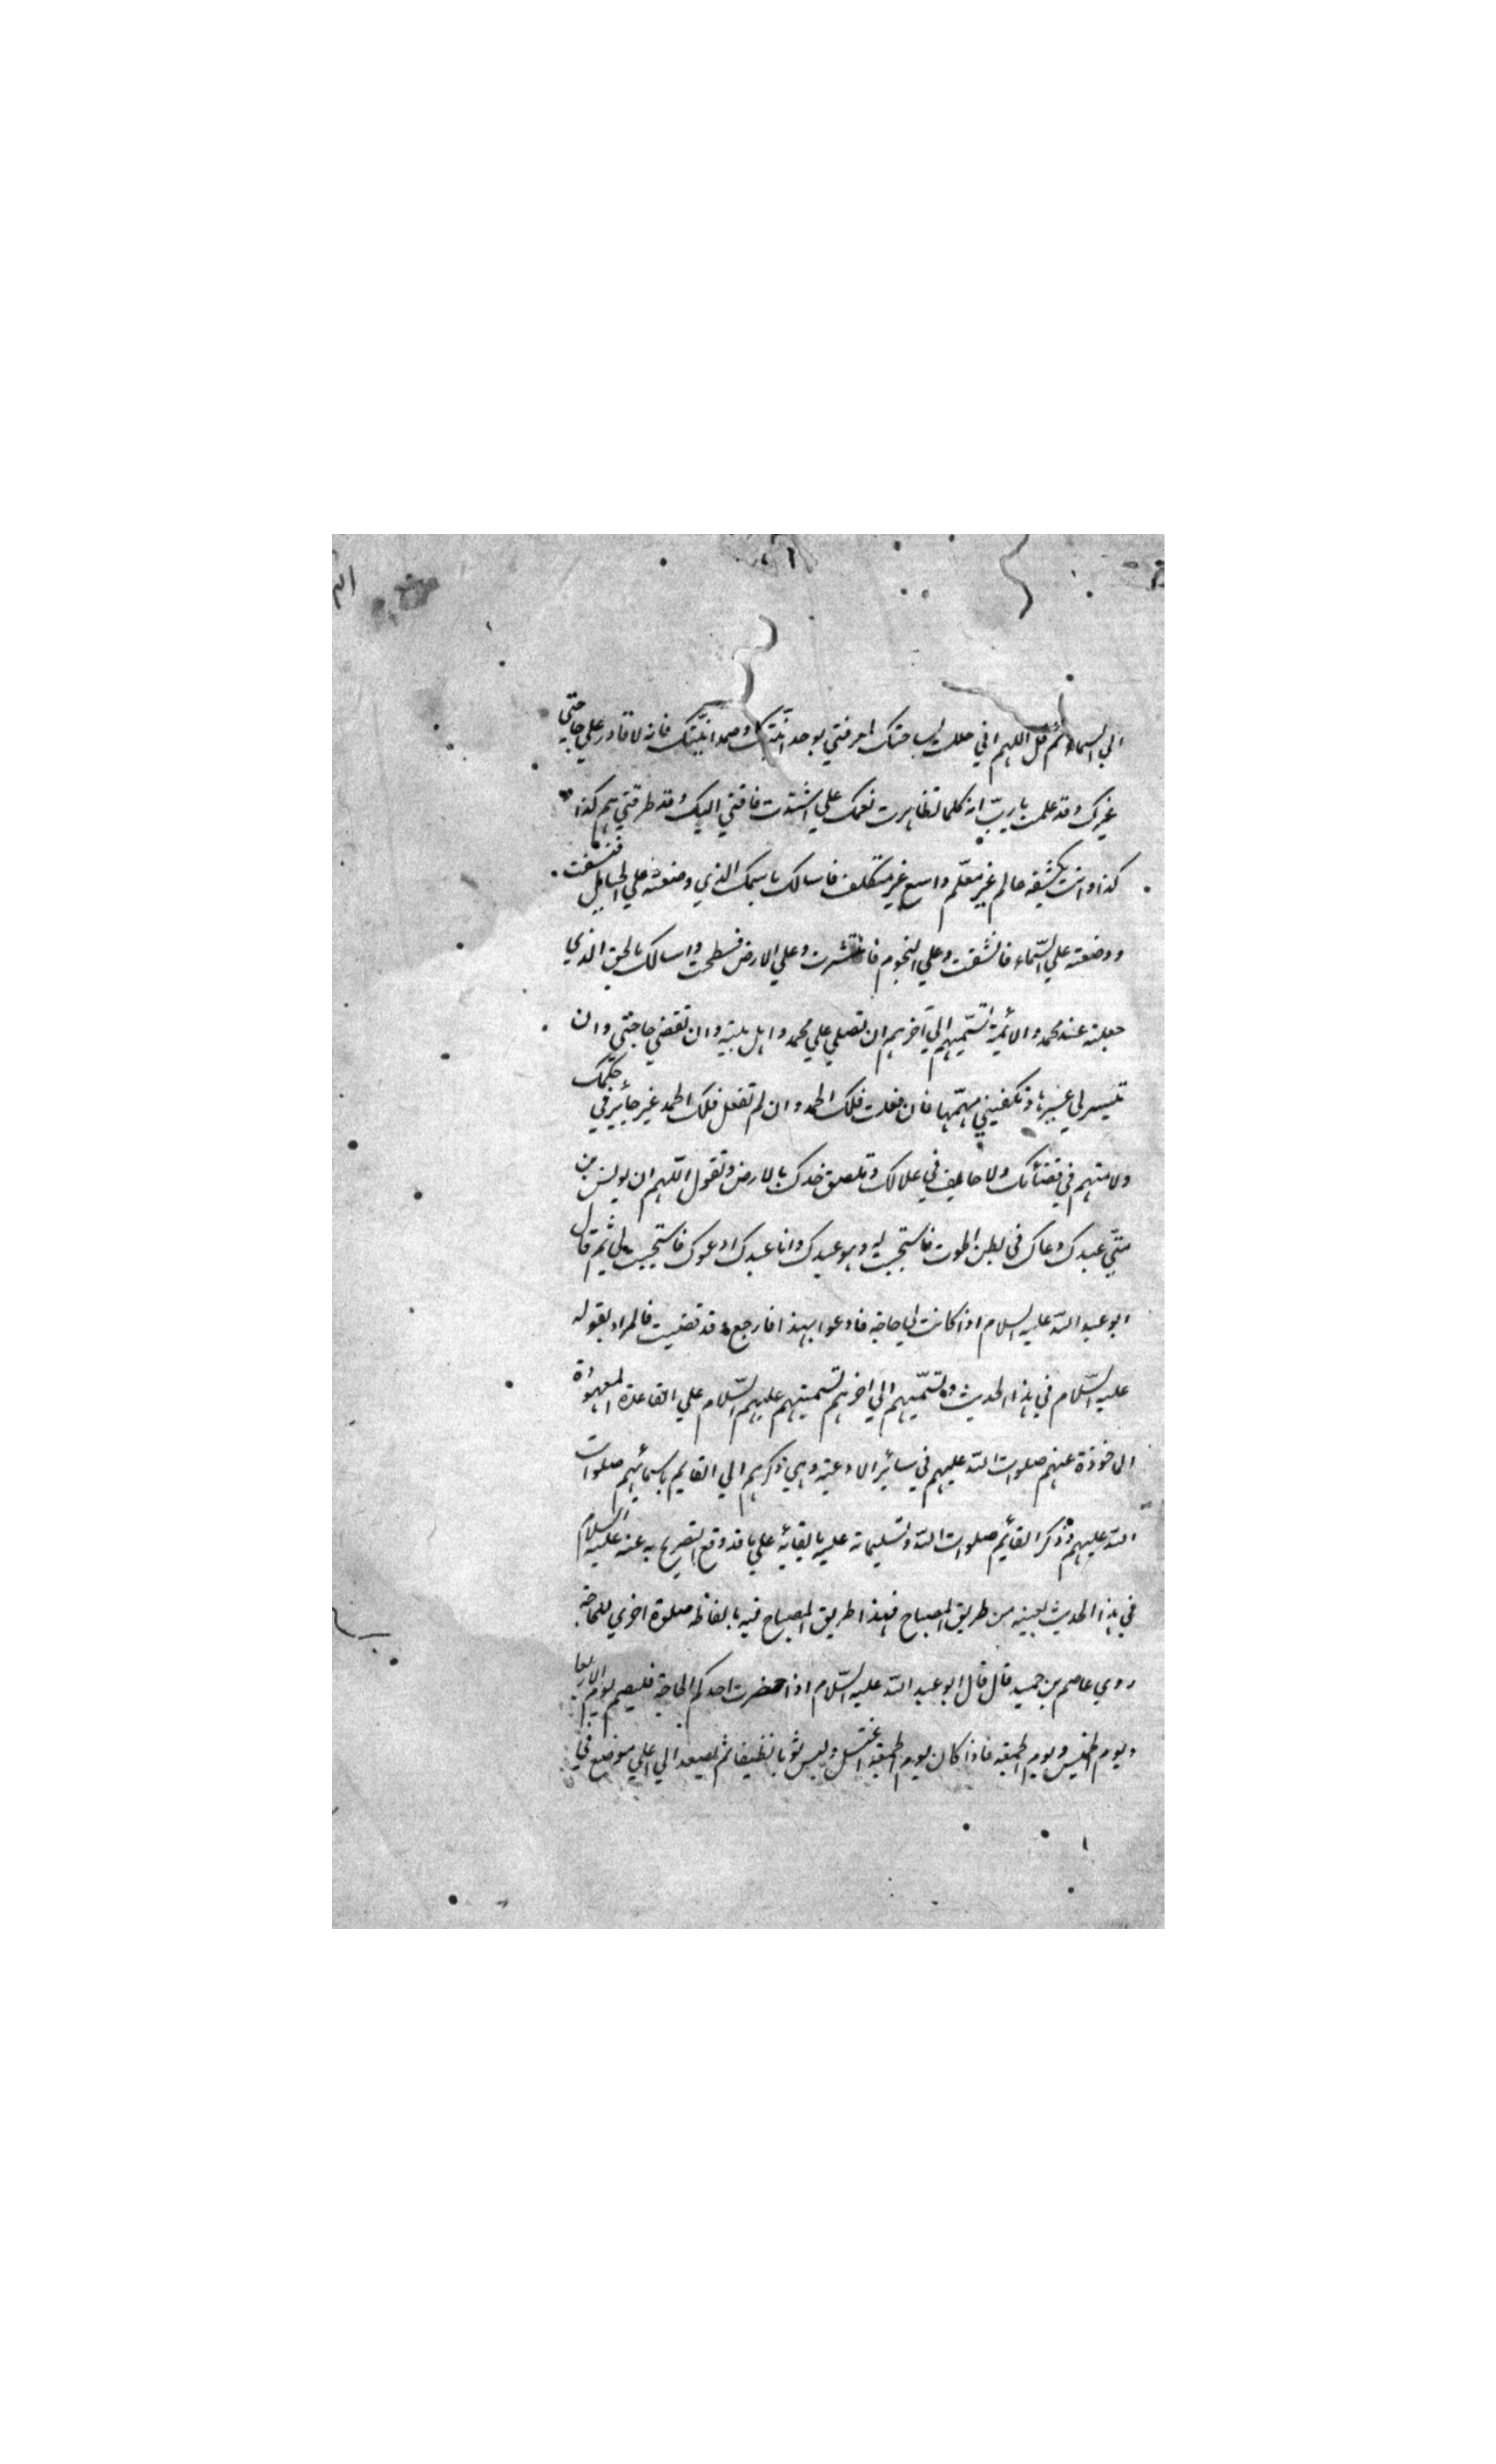 الي السماء ثم قل اللهم اني حللت بساحتك لمعرفتي بوحدانيّتك وصمدانيّتك فانه لا قادر علي حاجتي
غيرك وقد علمت يا ربّ انه كلما تظاهرت نعمك علي اشتدّت فاقتي اليك وقد طرقتني هم كذا
كذا وانت بكشفه عالم غير معلّم واسع غير متكلف فاسالك باسمك الذي وضعته علي الجبال فنسفت
ووضعته علي السّماء فانشقت وعلي النجوم فانتشرت وعلي الارض فسطحت واسالك بالحق الذي
جعلته عند محمد والائمة تسمّيهم الي آخرهم ان تصلي علي محمد واهل بيته وان تقضي حاجتي وان
تيسر لي عسيرها وتكفيني مهمّها فان فعلت فلك الحمد وان لم تفعل فلك الحمد غير جائر في حكمك
ولا متهم في قضائك ولا حايف في عدلك وتلصق خدك بالارض وتقول اللهم ان يونس بن
متّي عبدك دعاك في بطن الحوت فاستجبت له وهو عبدك وانا عبدك ادعوك فاستجيب لي ثم قال
ابو عبد اللّه عليه السلام اذا كانت لي حاجة فادعوا بهذا فارجع وقد قضيت فالمراد بقوله
عليه السّلام في هذا الحديث وتسمّيهم الي اخرهم تسميتهم عليهم السّلام علي القاعدة المعهودة
الماخوذة عنهم صلوات اللّه عليهم في سائر الادعية وهي ذكرهم الي القايم باسمائهم صلوات
اللّه عليهم وذكر القائم صلوات اللّه وتسليماته عليه بالقابه علي ما قد وقع التصريح به عنه عليه السلام
في هذا الحديث بعينه من طريق المصباح فهذا طريق المصباح فيه بالفاظه صلوة اخري للحاجة
روي عاصم بن حميد قال قال ابو عبد اللّه عليه السّلام اذا حضرت احدكم الحاجة فليصم يوم الاربعا
ويوم الخميس ويوم الجمعة فاذا كان يوم الجمعة اغتسل ولبس ثوبا نظيفا ثم يصعد الي اعلي موضع في